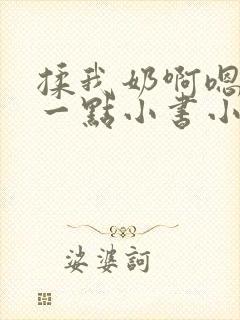 揉我奶啊嗯
一點小書小
娑婆訶